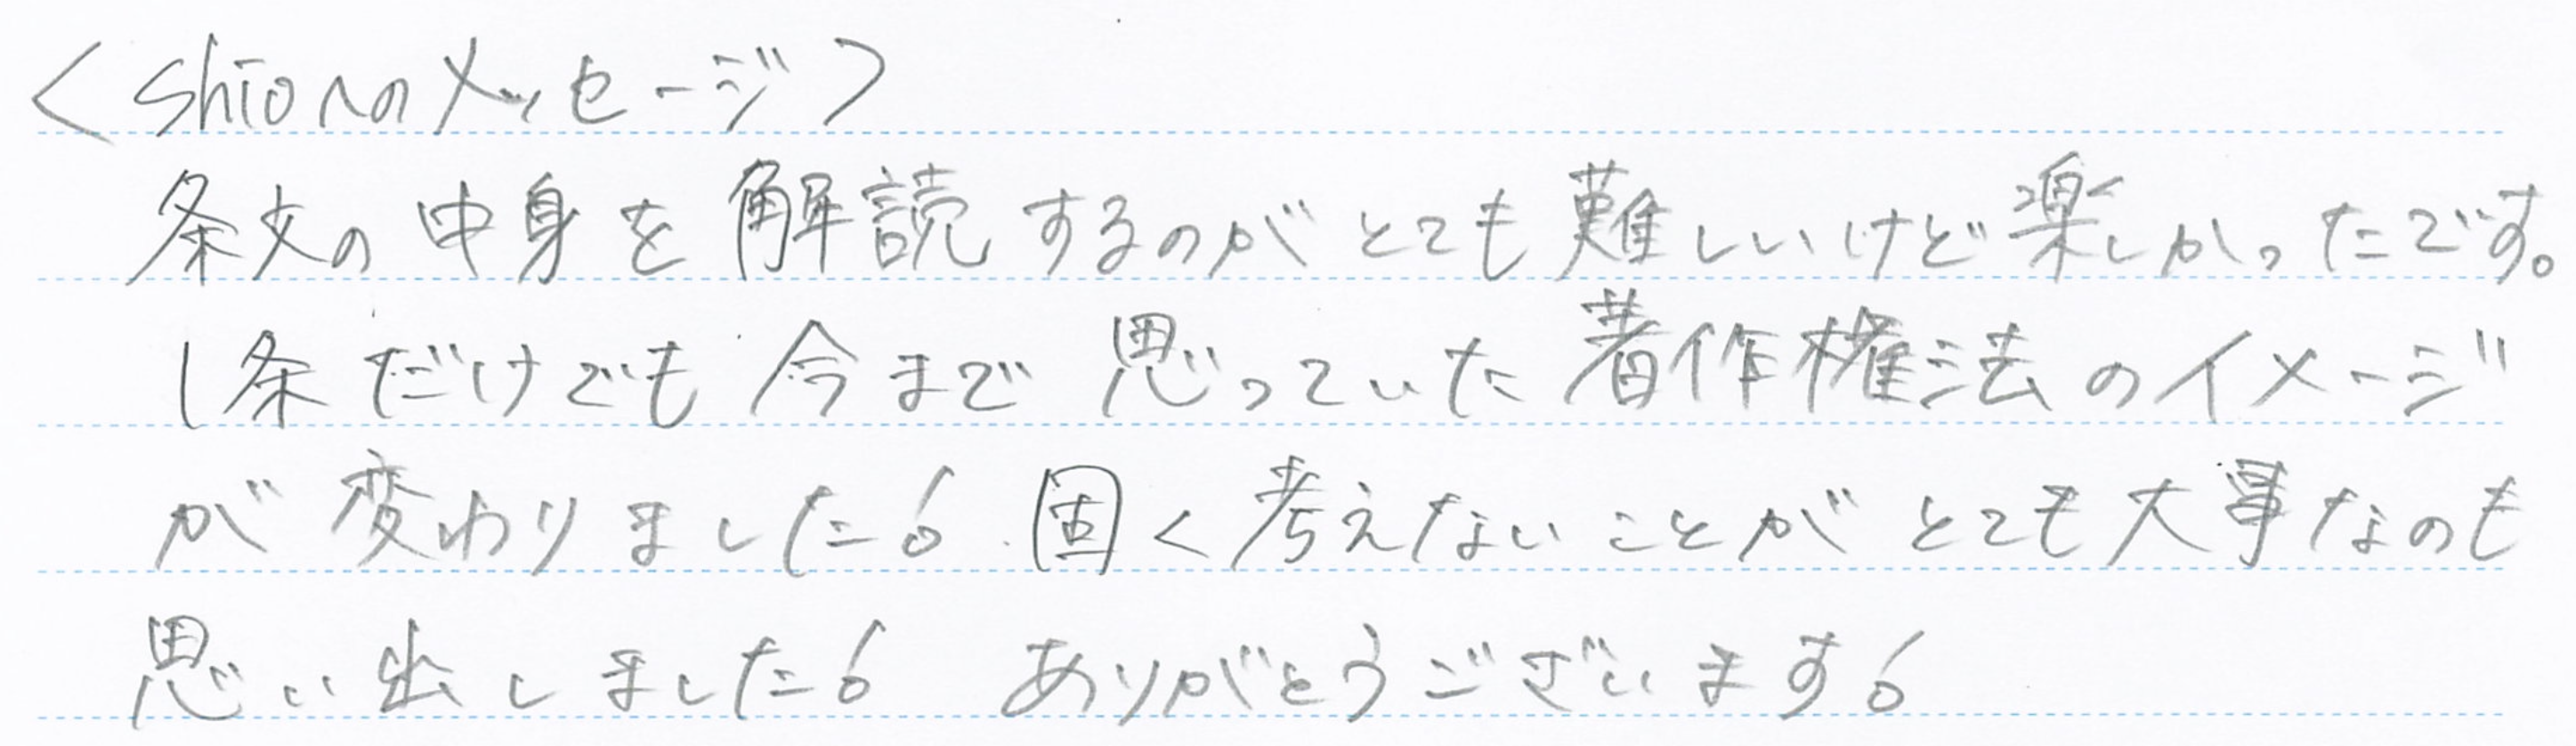 <shioへのメッセージ>
条文の中身を解読するのがとても難しいけど楽しかったです。
1条だけでも今まで思っていた著作権法のイメージ
が変わりました!固く考えないことがとても大事なのも
思い出しました! ありがとうございます!